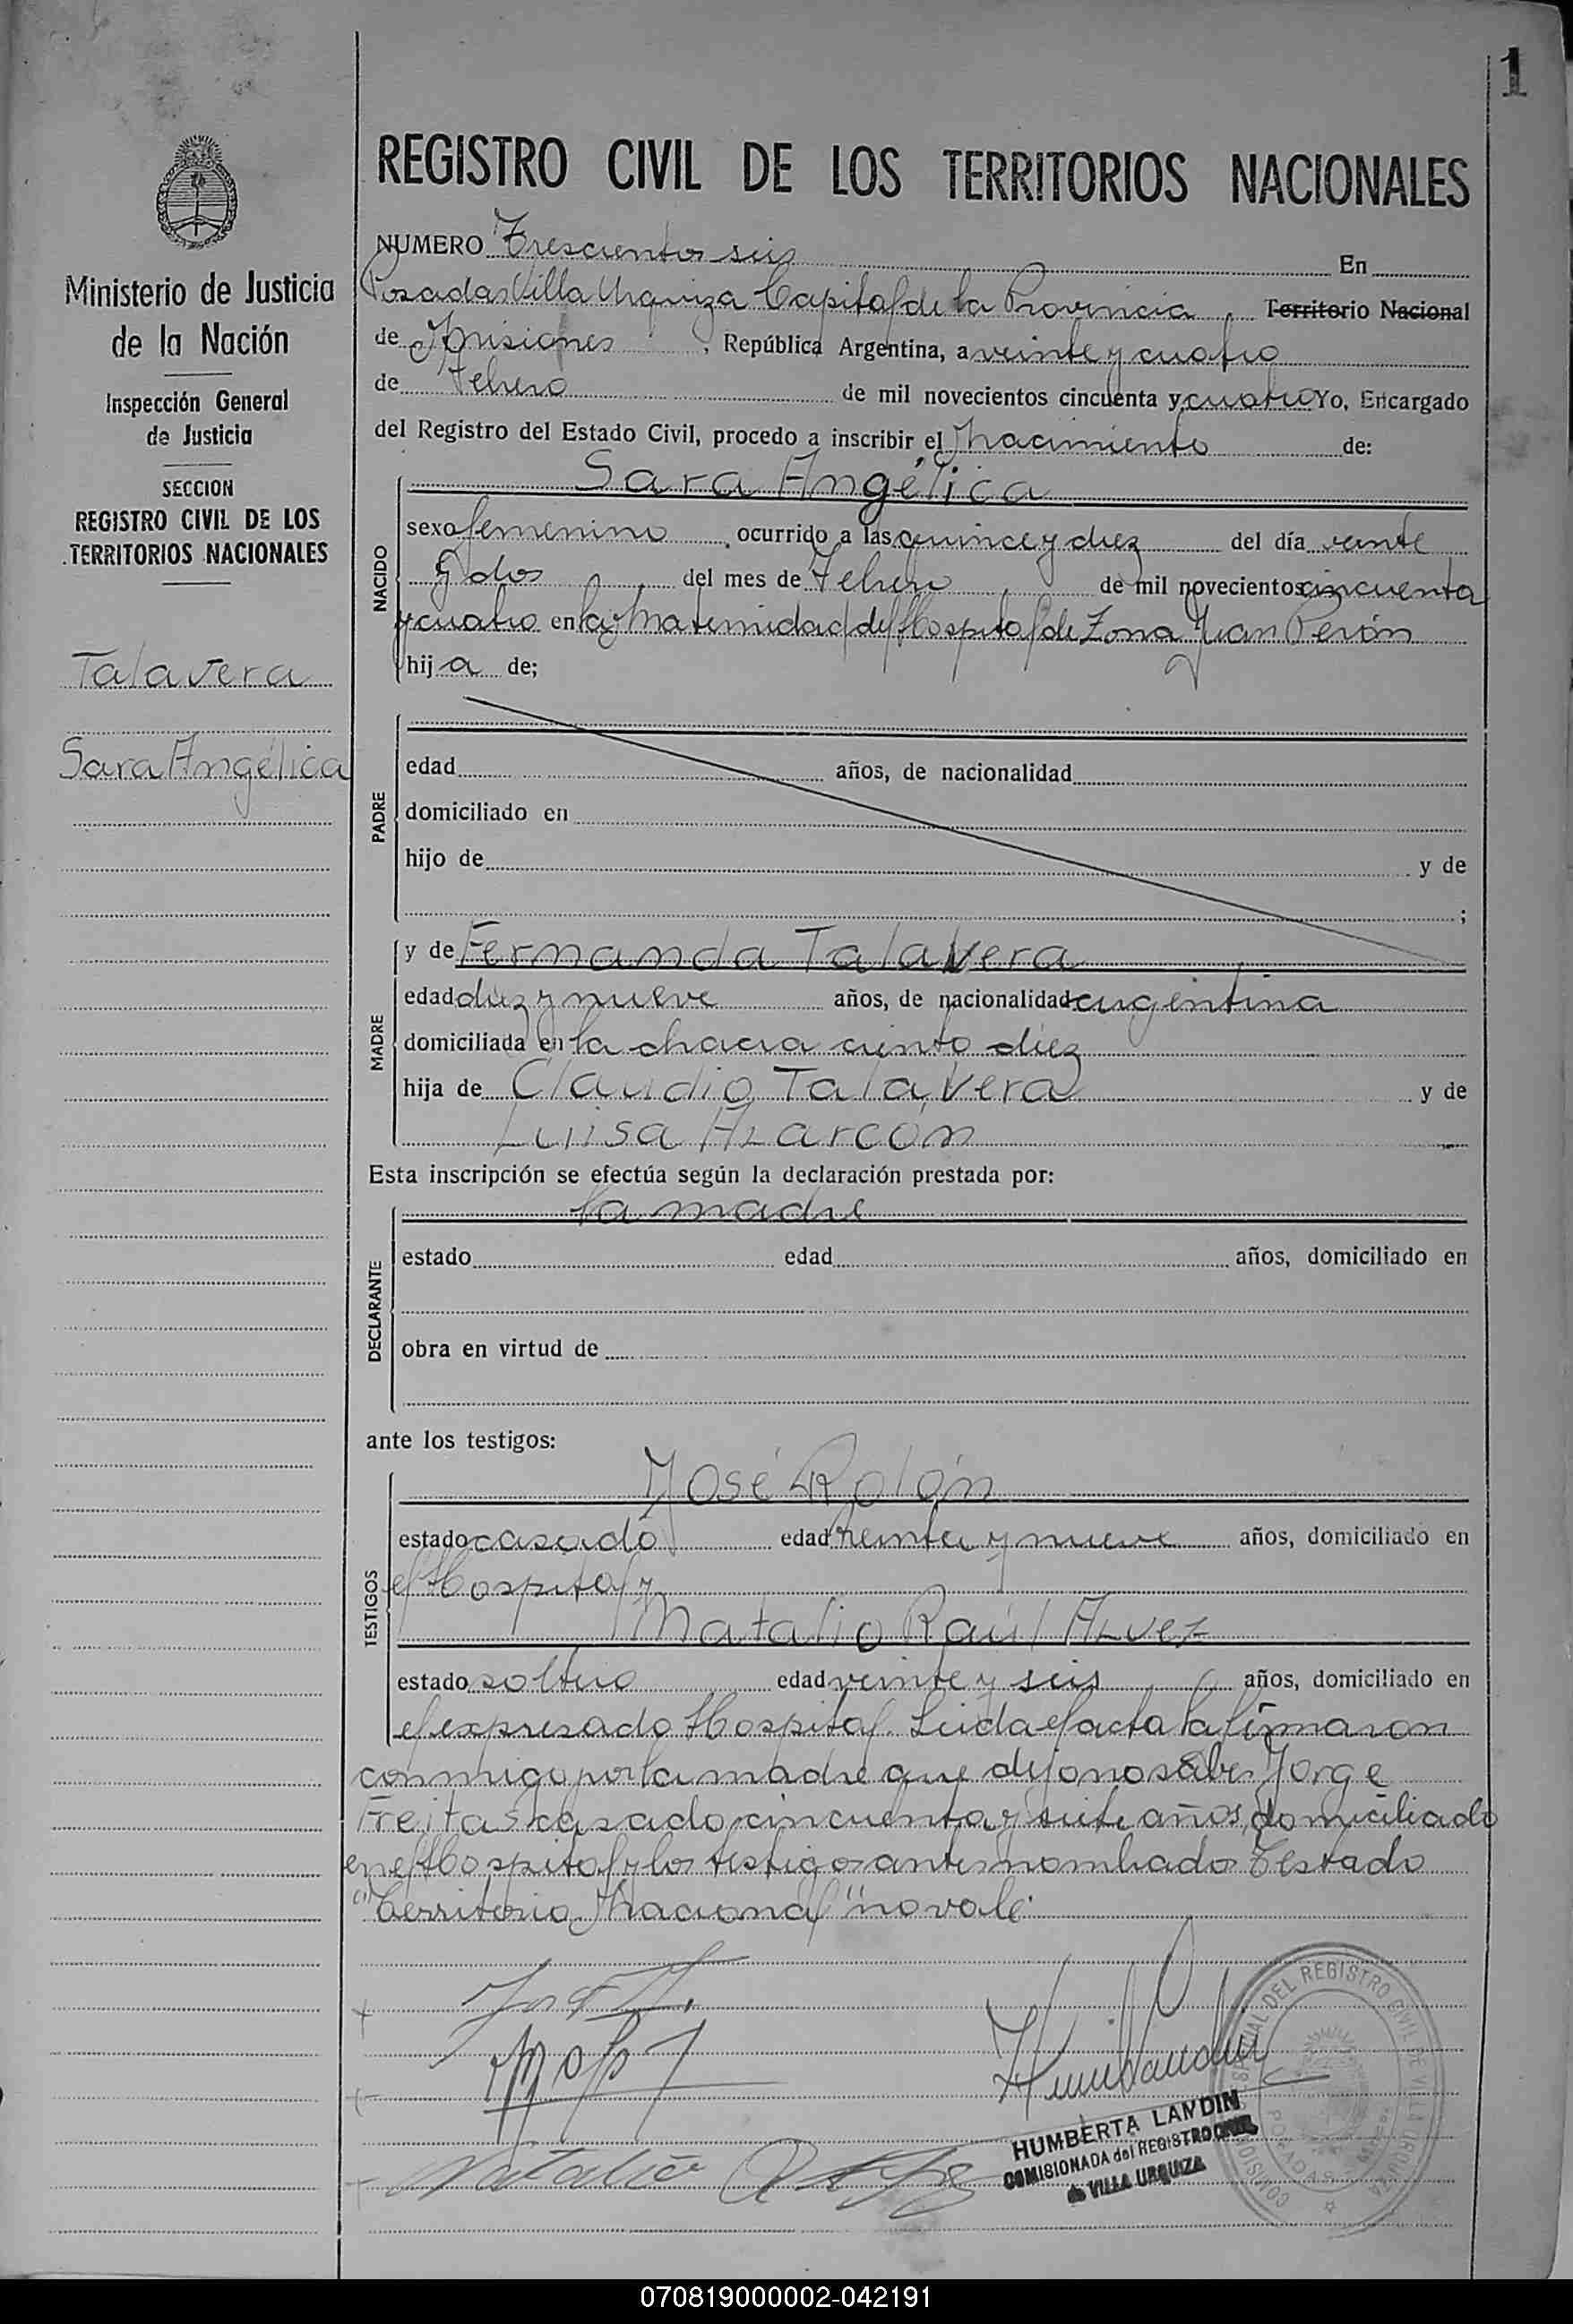 1
REGISTRO CIVIL DE LOS TERRITORIOS NACIONALES
Ministerio de Justicia
de la Nación
Inspección General
de Justicia
SECCION
REGISTRO CIVIL DE LOS
TERRITORIOS NACIONALES
Talavera
Sara Angélica
NUMERO Trescientos seis En
Posadas Villa Urquiza Capital de la Provincia Territorio Nacional
de Misiones, República Argentina, a veinte y cuatro
de Febrero de mil novecientos cincuenta y cuatro Yo, Encargado
del Registro del Estado Civil, procedo a inscribir el nacimiento de:
NACIDO
Sara Angélica
sexo femenino, ocurrido a las quince y diez del día veinte
y dos del mes de Febrero de mil novecientos cincuenta
y cuatro en la Maternidad del Hospital de Zona Juan Perón
hija de;
PADRE
edad años, de nacionalidad
domiciliado en
hijo de y de
;
MADRE
y de Fernanda Talavera
edad diez y nueve años, de nacionalidad argentina
domiciliada en la chacra ciento diez
hija de Claudio Talavera y de
Luisa Alarcón
Esta inscripción se efectúa según la declaración prestada por:
DECLARANTE
la madre
estado edad años, domiciliado en
obra en virtud de
ante los testigos:
TESTIGOS
José Rolón
estado casado edad treinta y nueve años, domiciliado en
el Hospital y
Natalio Raúl Alvez
estado soltero edad veinte y seis años, domiciliado en
el expresado Hospital. Leida el acta la firmaron
conmigo por la madre que dijo no saber Jorge
Freitas casado, cincuenta y siete años, domiciliado
en el Hospital y los testigos antes nombrados Testado
"Territorio Nacional" no vale.
Natalio R
HUMBERTA LANDIN
COMISIONADA del REGISTRO CIVIL
de VILLA URQUIZA
DEL REGISTRO CIVIL DE VILLA URQUIZA
POSADAS
070819000002-042191